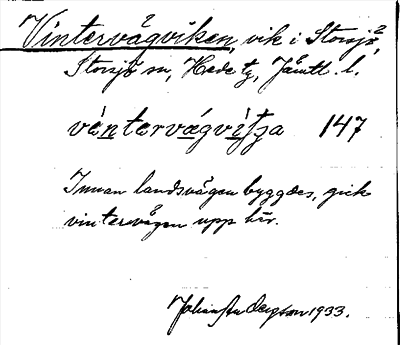 Vintervägviken, vik i Storsjö,
Storsjö sn, Hede tg, Jämtl. l.
vèntervágvìtja 147
Innan landsvägen byggdes, gick
vintervägen upp här.
1933.